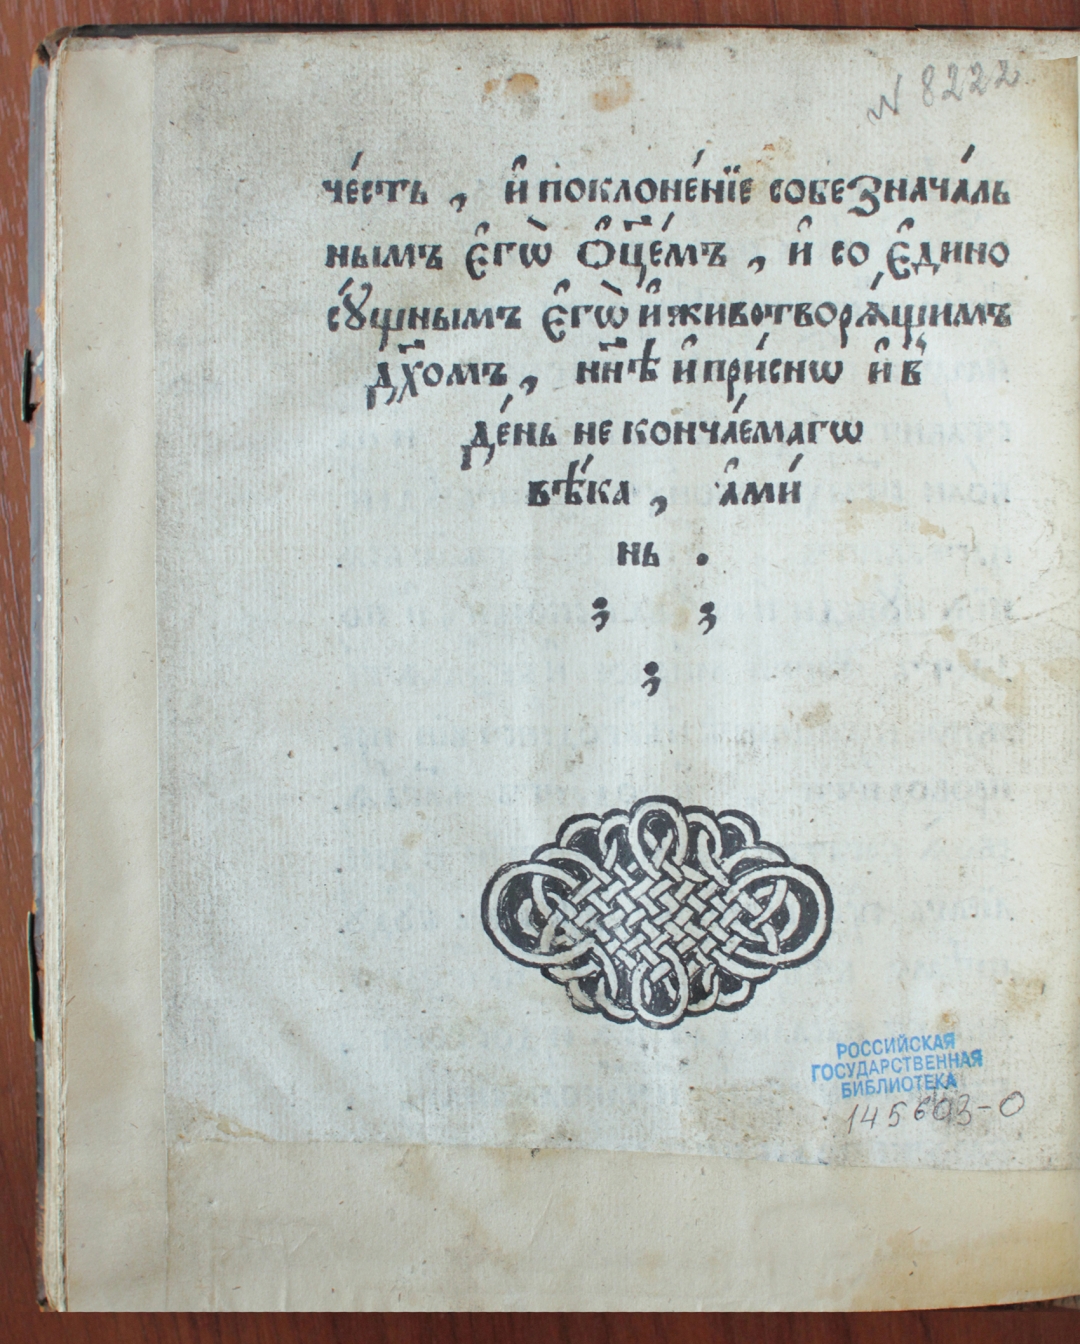 N 8222
че́сть , и҆ поклоне́нїе собезнача́ль
нымъ є҆гѡ̀ ѻ҆ц҃е́мъ , и҆ со є҆дино
сꙋ́щнымъ є҆гѡ̀ и҆ животворѧ́щимъ
дх҃омъ , нн҃ѣ и҆ при́снѡ и҆ в
де́нь не конча́емагѡ
вѣ́ка , а҆ми́
нь .
; ;
;
РОССИЙСКАЯ
ГОСУДАРСТВЕННАЯ
БИБЛИОТЕКА
145603-О